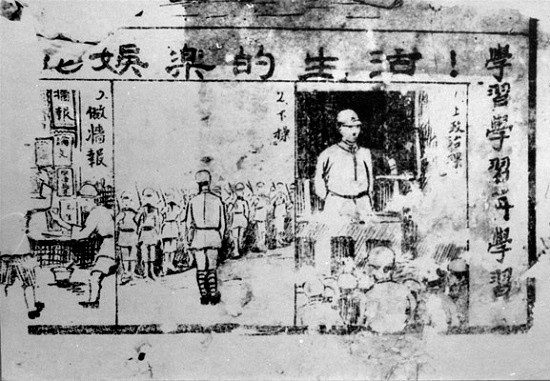 學習學習再學習
化娛樂的生活！
1、上政治課
2、下操
3、做牆報
牆報
論文